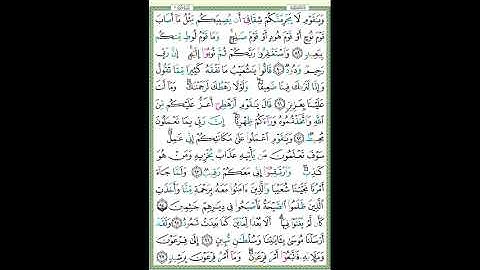 وَيَٰقَوْمِ لَا يَجْرِمَنَّكُمْ شِقَاقِىٓ أَن يُصِيبَكُم مِّثْلُ مَآ أَصَابَ
قَوْمَ نُوحٍ أَوْ قَوْمَ هُودٍ أَوْ قَوْمَ صَٰلِحٍ ۚ وَمَا قَوْمُ لُوطٍ مِّنكُم
بِبَعِيدٍ ٨٩ وَٱسْتَغْفِرُوا۟ رَبَّكُمْ ثُمَّ تُوبُوٓا۟ إِلَيْهِ ۚ إِنَّ رَبِّى
رَحِيمٌ وَدُودٌ ٩٠ قَالُوا۟ يَٰشُعَيْبُ مَا نَفْقَهُ كَثِيرًا مِّمَّا تَقُولُ
وَإِنَّا لَنَرَىٰكَ فِينَا ضَعِيفًا ۖ وَلَوْلَا رَهْطُكَ لَرَجَمْنَٰكَ ۖ وَمَآ أَنتَ
عَلَيْنَا بِعَزِيزٍ ٩١ قَالَ يَٰقَوْمِ أَرَهْطِىٓ أَعَزُّ عَلَيْكُم مِّنَ
ٱللَّهِ وَٱتَّخَذْتُمُوهُ وَرَآءَكُمْ ظِهْرِيًّا ۖ إِنَّ رَبِّى بِمَا تَعْمَلُونَ
مُحِيطٌ ٩٢ وَيَٰقَوْمِ ٱعْمَلُوا۟ عَلَىٰ مَكَانَتِكُمْ إِنِّى عَٰمِلٌ ۖ
سَوْفَ تَعْلَمُونَ مَن يَأْتِيهِ عَذَابٌ يُخْزِيهِ وَمَنْ هُوَ
كَٰذِبٌ ۖ وَٱرْتَقِبُوٓا۟ إِنِّى مَعَكُمْ رَقِيبٌ ٩٣ وَلَمَّا جَآءَ
أَمْرُنَا نَجَّيْنَا شُعَيْبًا وَٱلَّذِينَ ءَامَنُوا۟ مَعَهُۥ بِرَحْمَةٍ مِّنَّا وَأَخَذَتِ
ٱلَّذِينَ ظَلَمُوا۟ ٱلصَّيْحَةُ فَأَصْبَحُوا۟ فِى دِيَٰرِهِمْ جَٰثِمِينَ ٩٤
كَأَن لَّمْ يَغْنَوْا۟ فِيهَآ ۗ أَلَا بُعْدًا لِّمَدْيَنَ كَمَا بَعِدَتْ ثَمُودُ ٩٥ وَلَقَدْ
أَرْسَلْنَا مُوسَىٰ بِـَٔايَٰتِنَا وَسُلْطَٰنٍ مُّبِينٍ ٩٦ إِلَىٰ فِرْعَوْنَ
وَمَلَإِي۟هِۦ فَٱتَّبَعُوٓا۟ أَمْرَ فِرْعَوْنَ ۖ وَمَآ أَمْرُ فِرْعَوْنَ بِرَشِيدٍ ٩٧